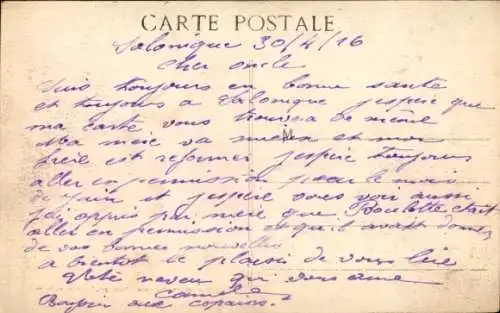 CARTE POSTALE
Salonique 30/4/16
Cher oncle
Suis toujours en bonne sante
et toujours a Salonique j'espère que
ma carte vous trouvera de meme
Ma mère va mieux et mon
M
frère est reformer j'espère toujours
aller en permission pour le mois
de juin et j'espère vous voir aussi
j'ai appris par mère que Boulotte était
aller en permission et qu'il avait donner
de vos bonnes nouvelles
a bientot le plaisir de vous lire
Votre neveu qui vous aime
Camille
Bonjour aux copains